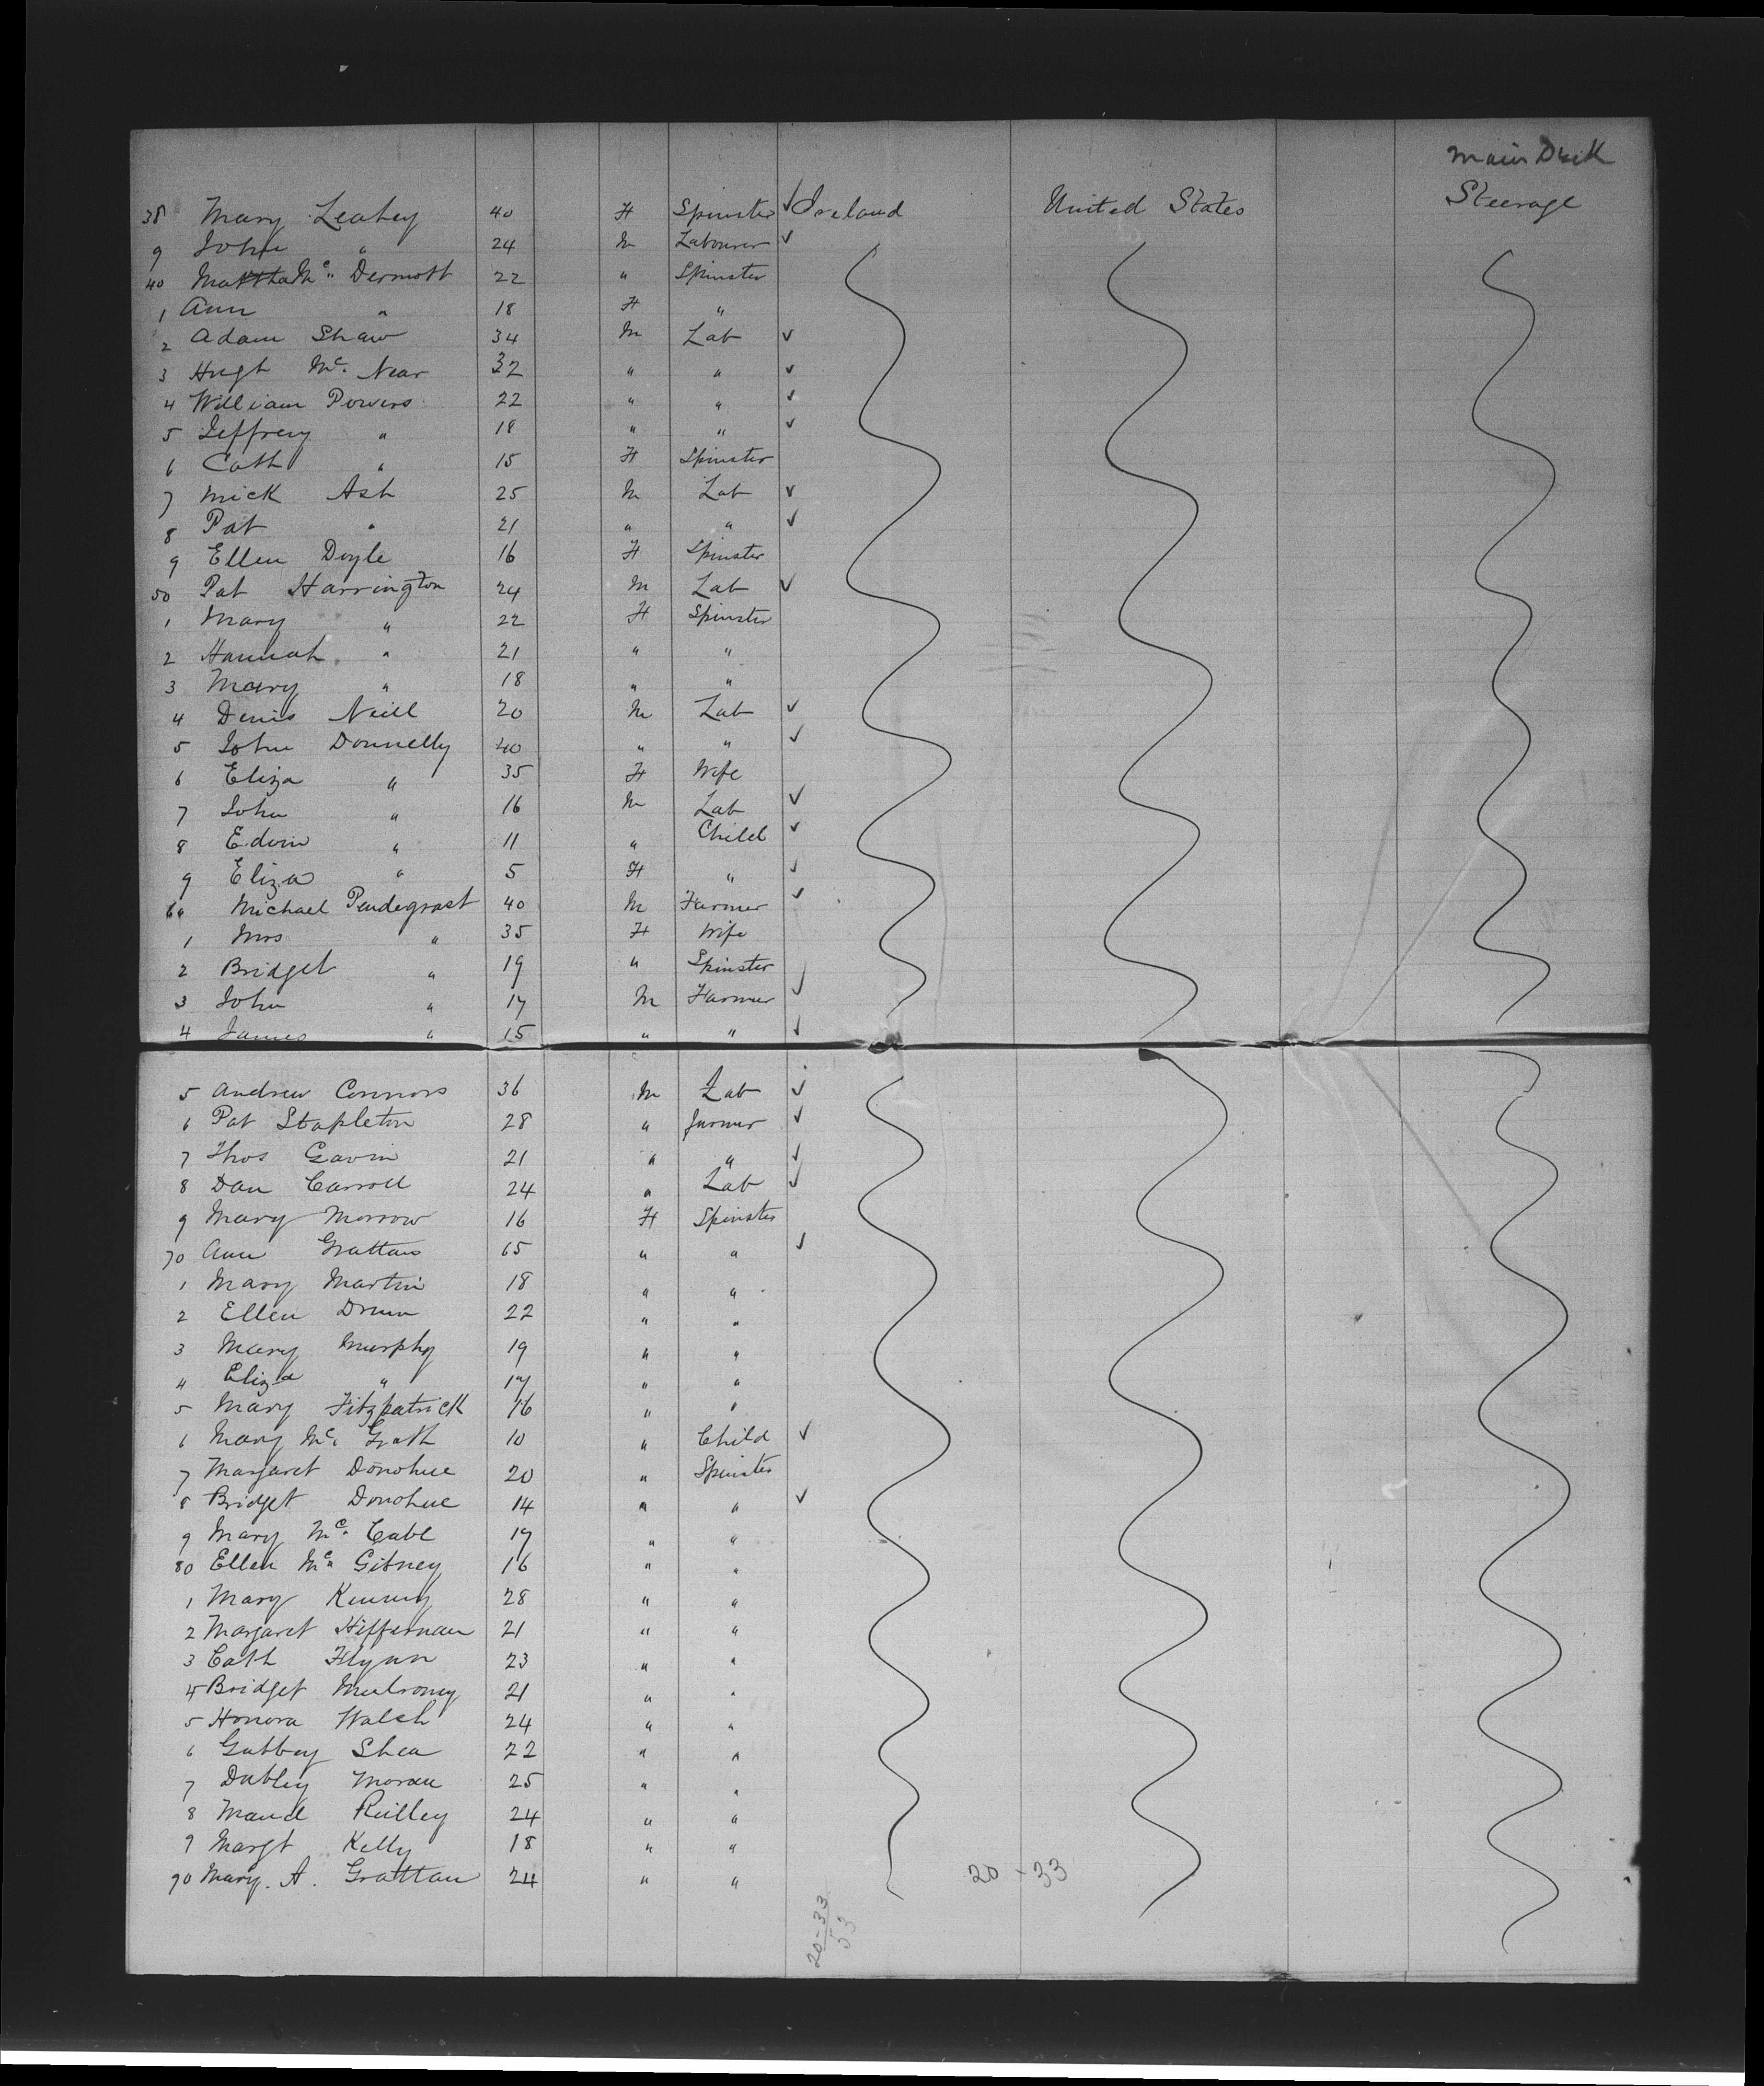 Main Deck
38 Mary Leahey 40 F Spinster ✓ Ireland United States Steerage
9 John " 24 M Labourer ✓
40 Mc. Dermott 22 " Spinster
1 Ann " 18 F "
2 Adam Shaw 34 M Lab ✓
3 Hugh Mc. Near 32 " " ✓
4 William Powers 22 " " ✓
5 Jeffrey " 18 " " ✓
6 Cath " 15 F Spinster
7 Mick Ash 25 M Lab ✓
8 Pat " 21 " " ✓
9 Ellen Doyle 16 F Spinster
50 Pat Harrington 24 M Lab ✓
1 Mary " 22 F Spinster
2 Hannah " 21 " "
3 Mary " 18 " "
4 Denis Neill 20 M Lab ✓
5 John Donnelly 40 " " ✓
6 Eliza " 35 F Wife
7 John " 16 M Lab ✓
8 Edwin " 11 " Child ✓
9 Eliza " 5 F " ✓
60 Michael Pendegrast 40 M Farmer ✓
1 Mrs " 35 F Wife
2 Bridget " 19 " Spinster
3 John " 17 M Farmer ✓
4 James " 15 " " ✓
5 Andrew Connors 36 M Lab ✓
6 Pat Stapleton 28 " farmer ✓
7 Thos Gavin 21 " " ✓
8 Dan Carroll 24 " Lab ✓
9 Mary Morrow 16 F Spinster
70 Ann Grattan 65 " " ✓
1 Mary Martin 18 " "
2 Ellen Drum 22 " "
3 Mary Murphy 19 " "
4 Eliza " 17 " "
5 Mary Fitzpatrick 16 " "
6 Mary Mc. Grath 10 " Child ✓
7 Margaret Donohue 20 " Spinster
8 Bridget Donohue 14 " " ✓
9 Mary Mc. Cabe 17 " "
80 Ellen Mc. Gitney 16 " "
1 Mary Kenny 28 " "
2 Margaret Hiffernan 21 " "
3 Cath Flynn 23 " "
4 Bridget Mulroney 21 " "
5 Honora Walsh 24 " "
6 Gubbey Shea 22 " "
7 Dubley Moran 25 " "
8 Maud Reilley 24 " "
9 Margt Kelly 18 " "
90 Mary. A. Grattan 24 " "
20 - 33
20-33
53